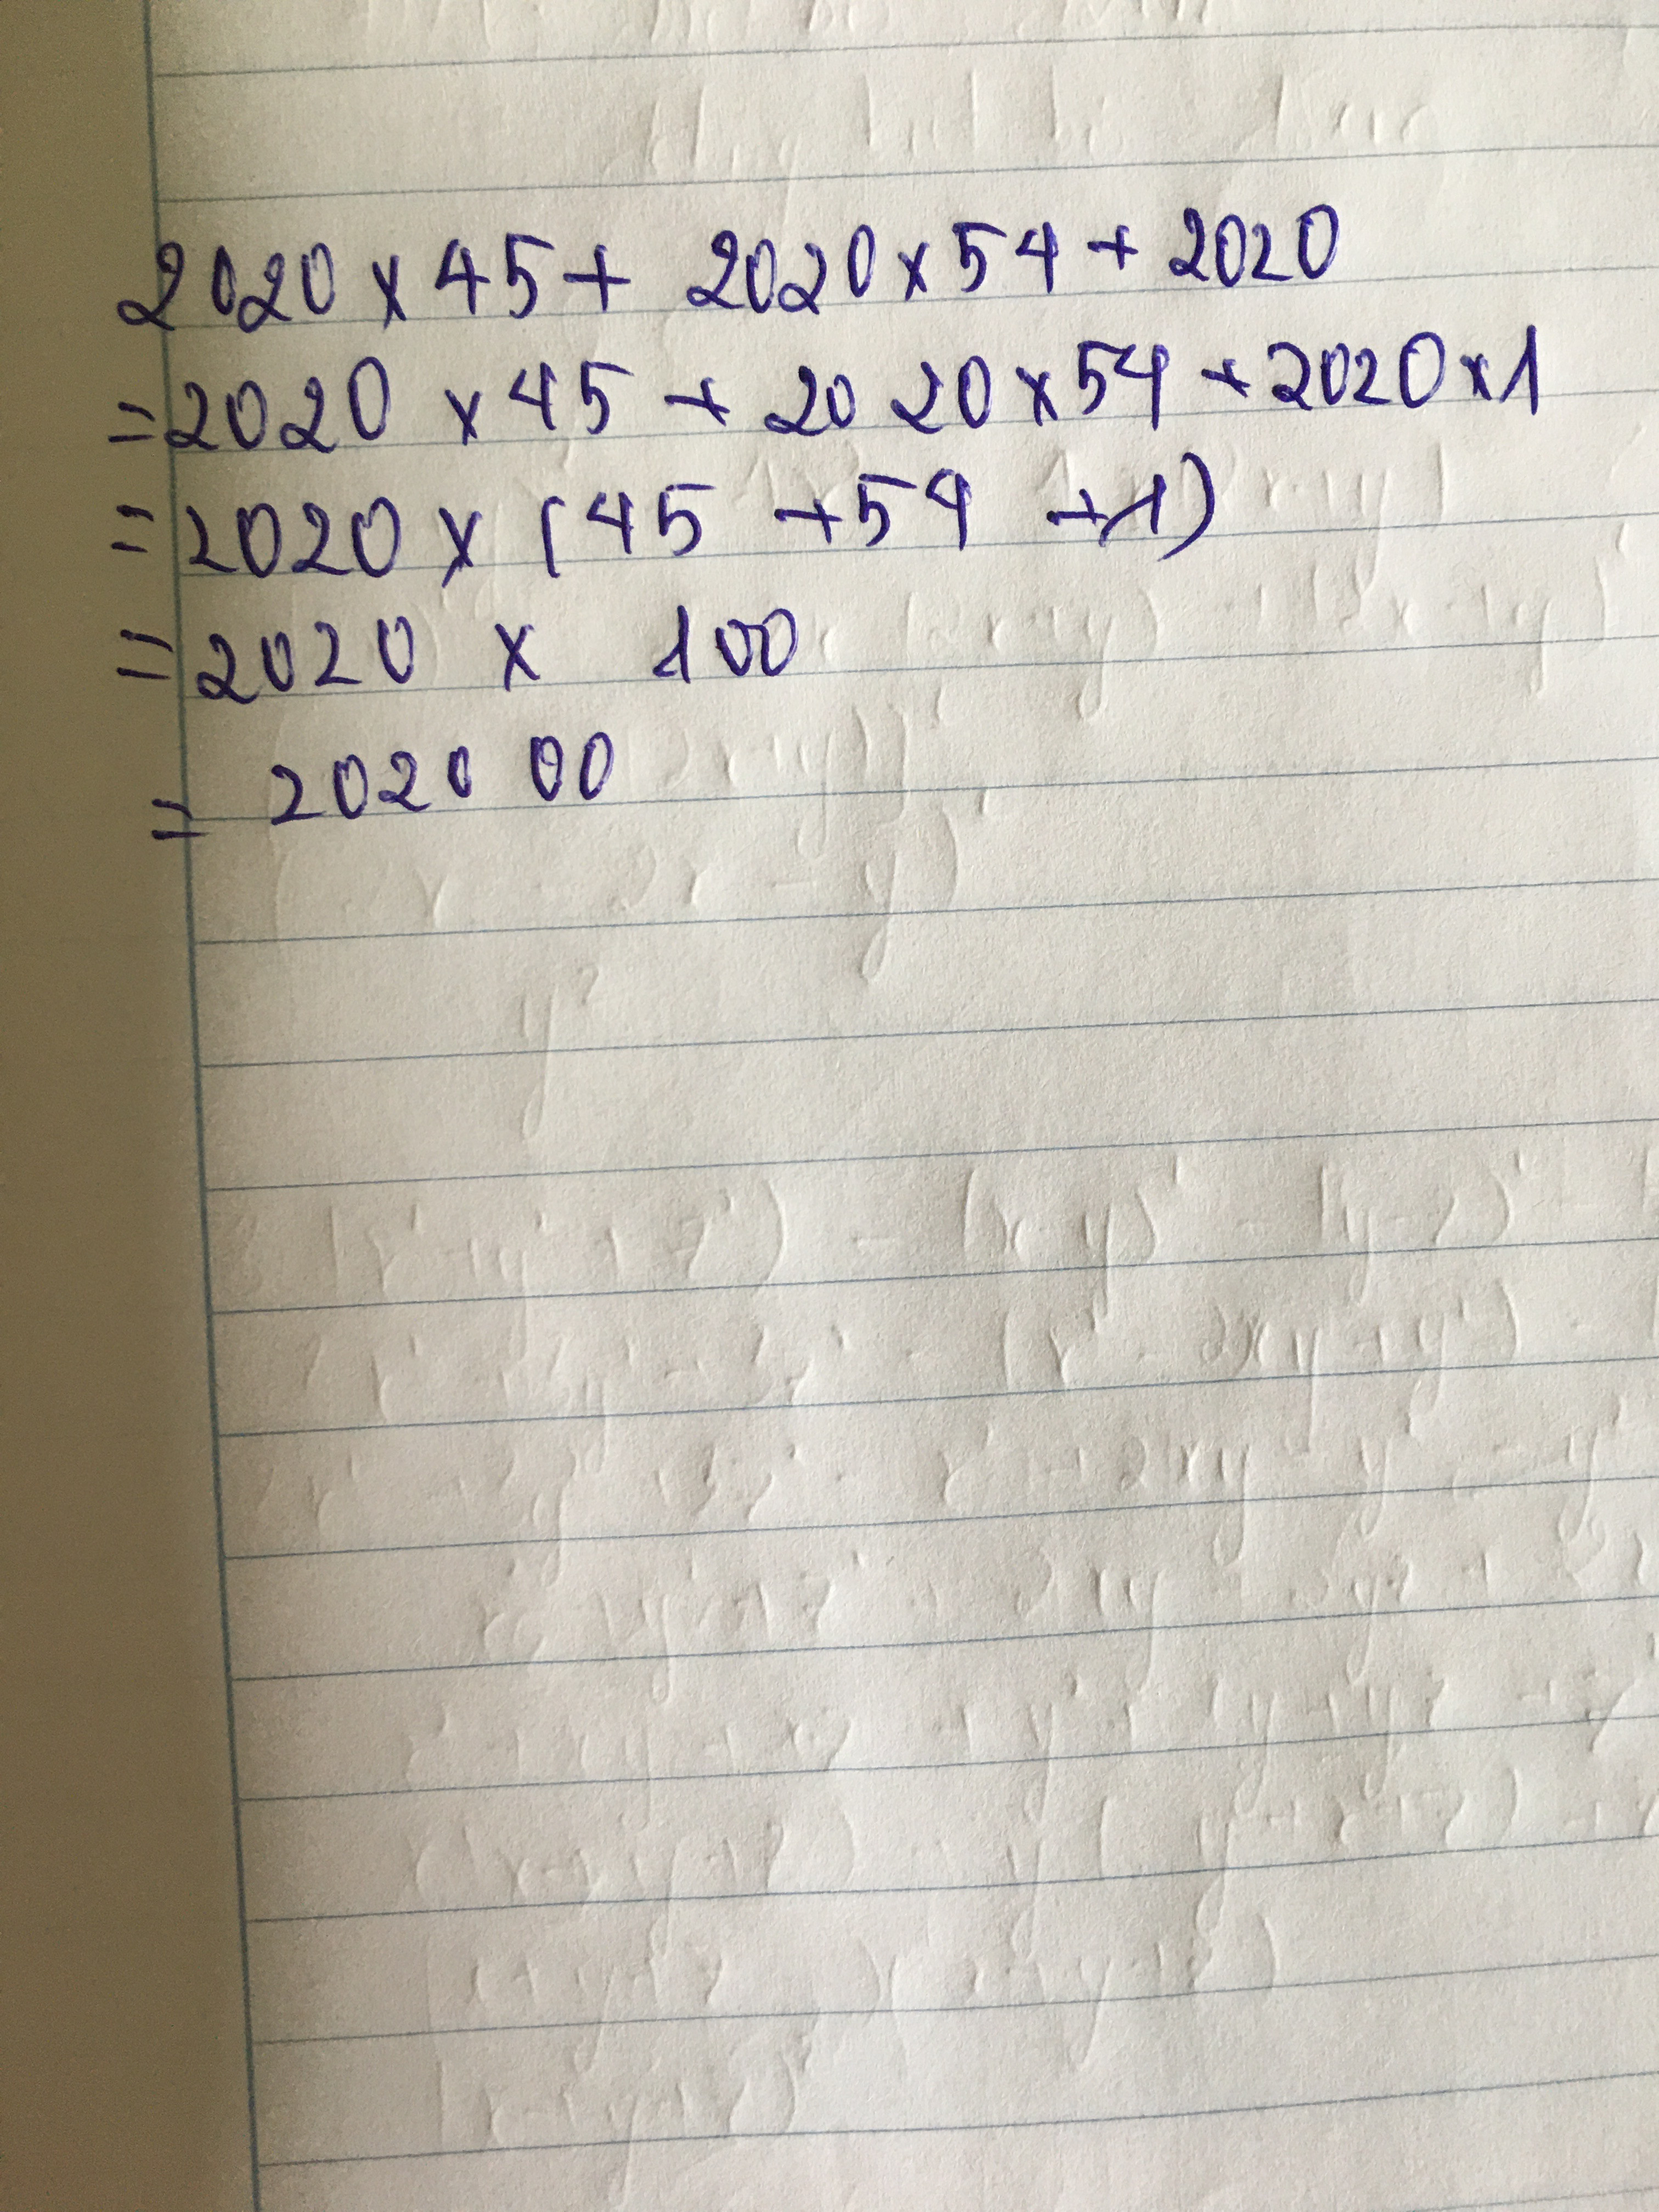 2020 x 45 + 2020 x 54 + 2020
= 2020 x 45 + 2020 x 54 + 2020 x 1
= 2020 x (45 + 54 + 1)
= 2020 x 100
= 202000